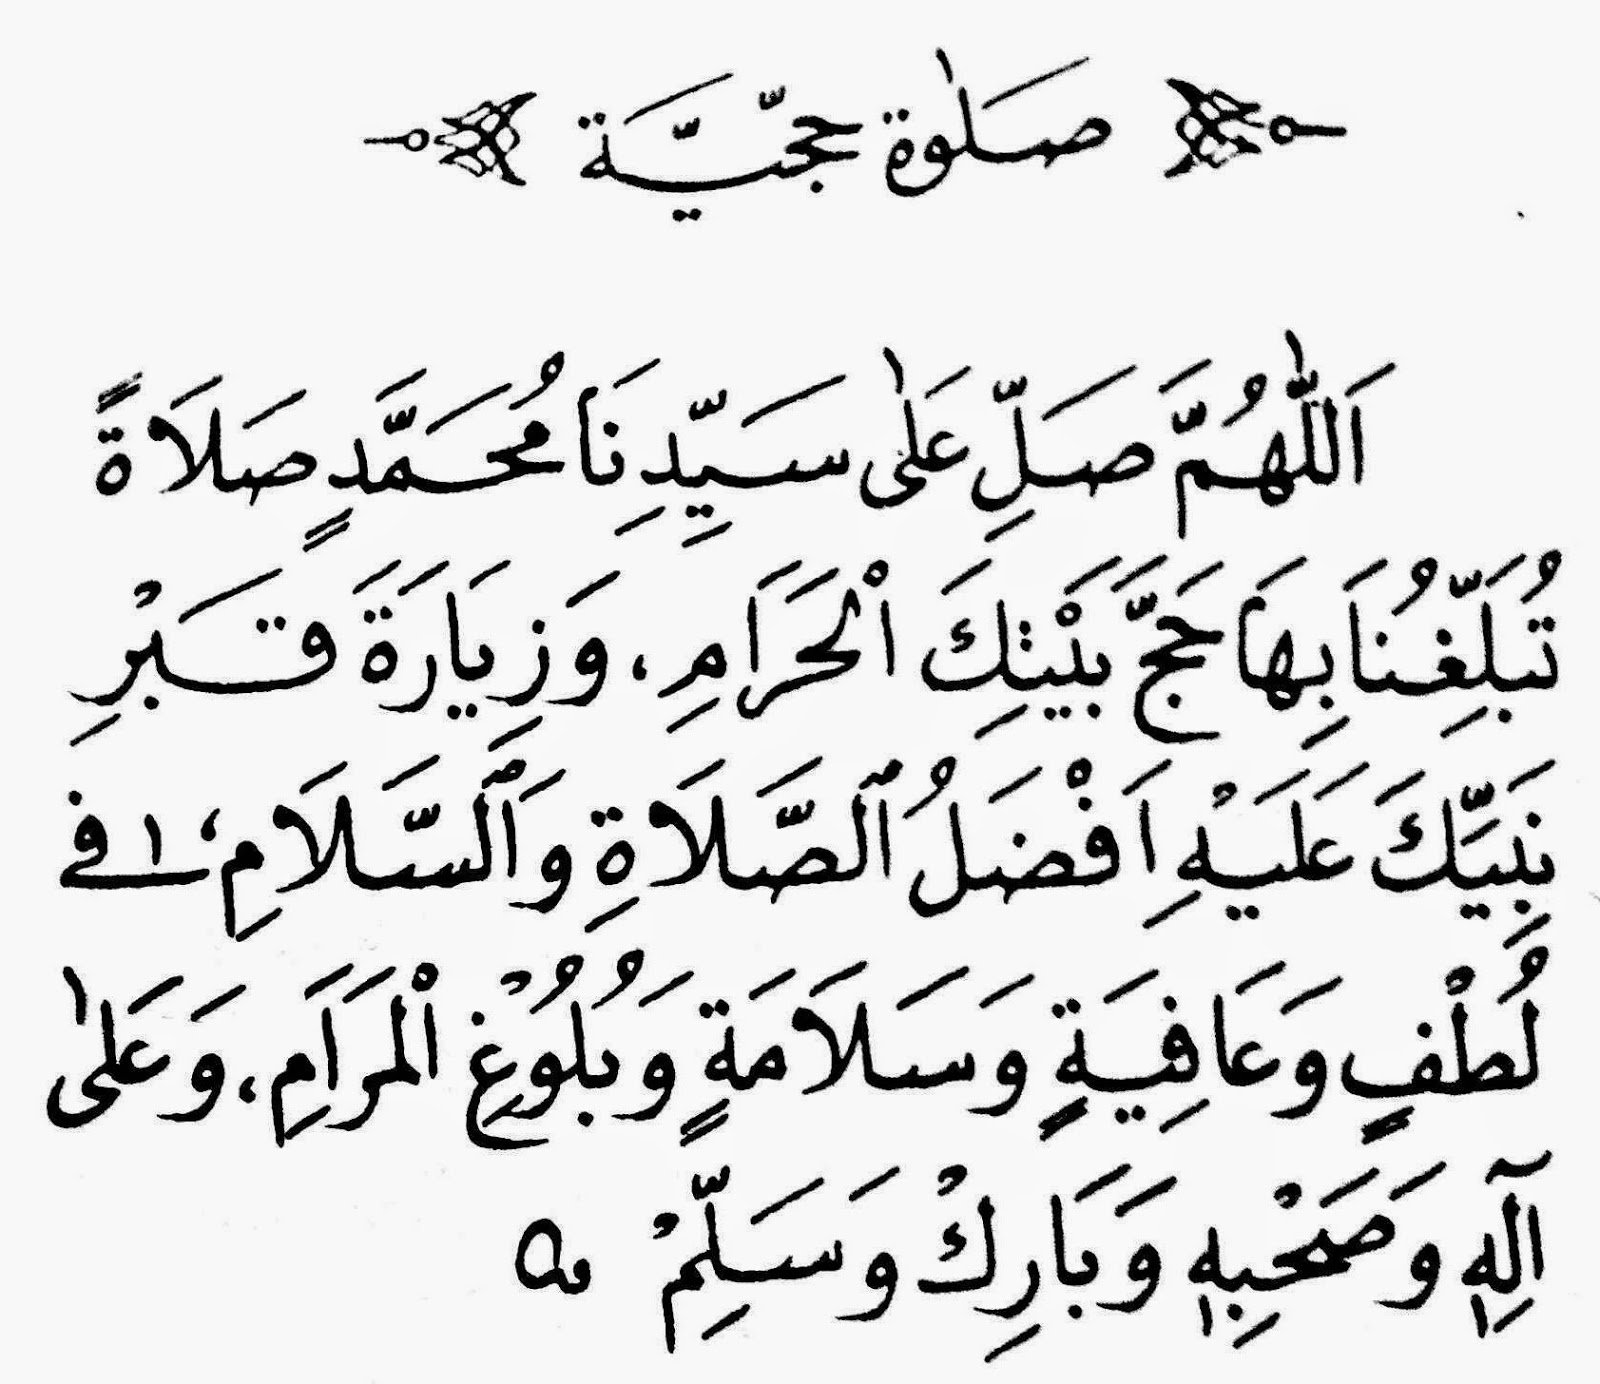 صَلٰوة حجّيَّة
اَللّٰهُمَّ صَلِّ عَلٰى سَيِّدِنَا مُحَمَّدٍ صَلَاةً
تُبَلِّغُنَا بِهَا حَجَّ بَيْتِكَ الْحَرَامِ، وَزِيَارَةَ قَبْرِ
نَبِيِّكَ عَلَيْهِ اَفْضَلُ ٱلصَّلَاةِ وَٱلسَّلَامِ، فِى
لُطْفٍ وَعَافِيَةٍ وَسَلَامَةٍ وَبُلُوْغِ الْمَرَامِ، وَعَلٰى
آلِهٖ وَصَحْبِهٖ وَبَارِكْ وَسَلِّمْ